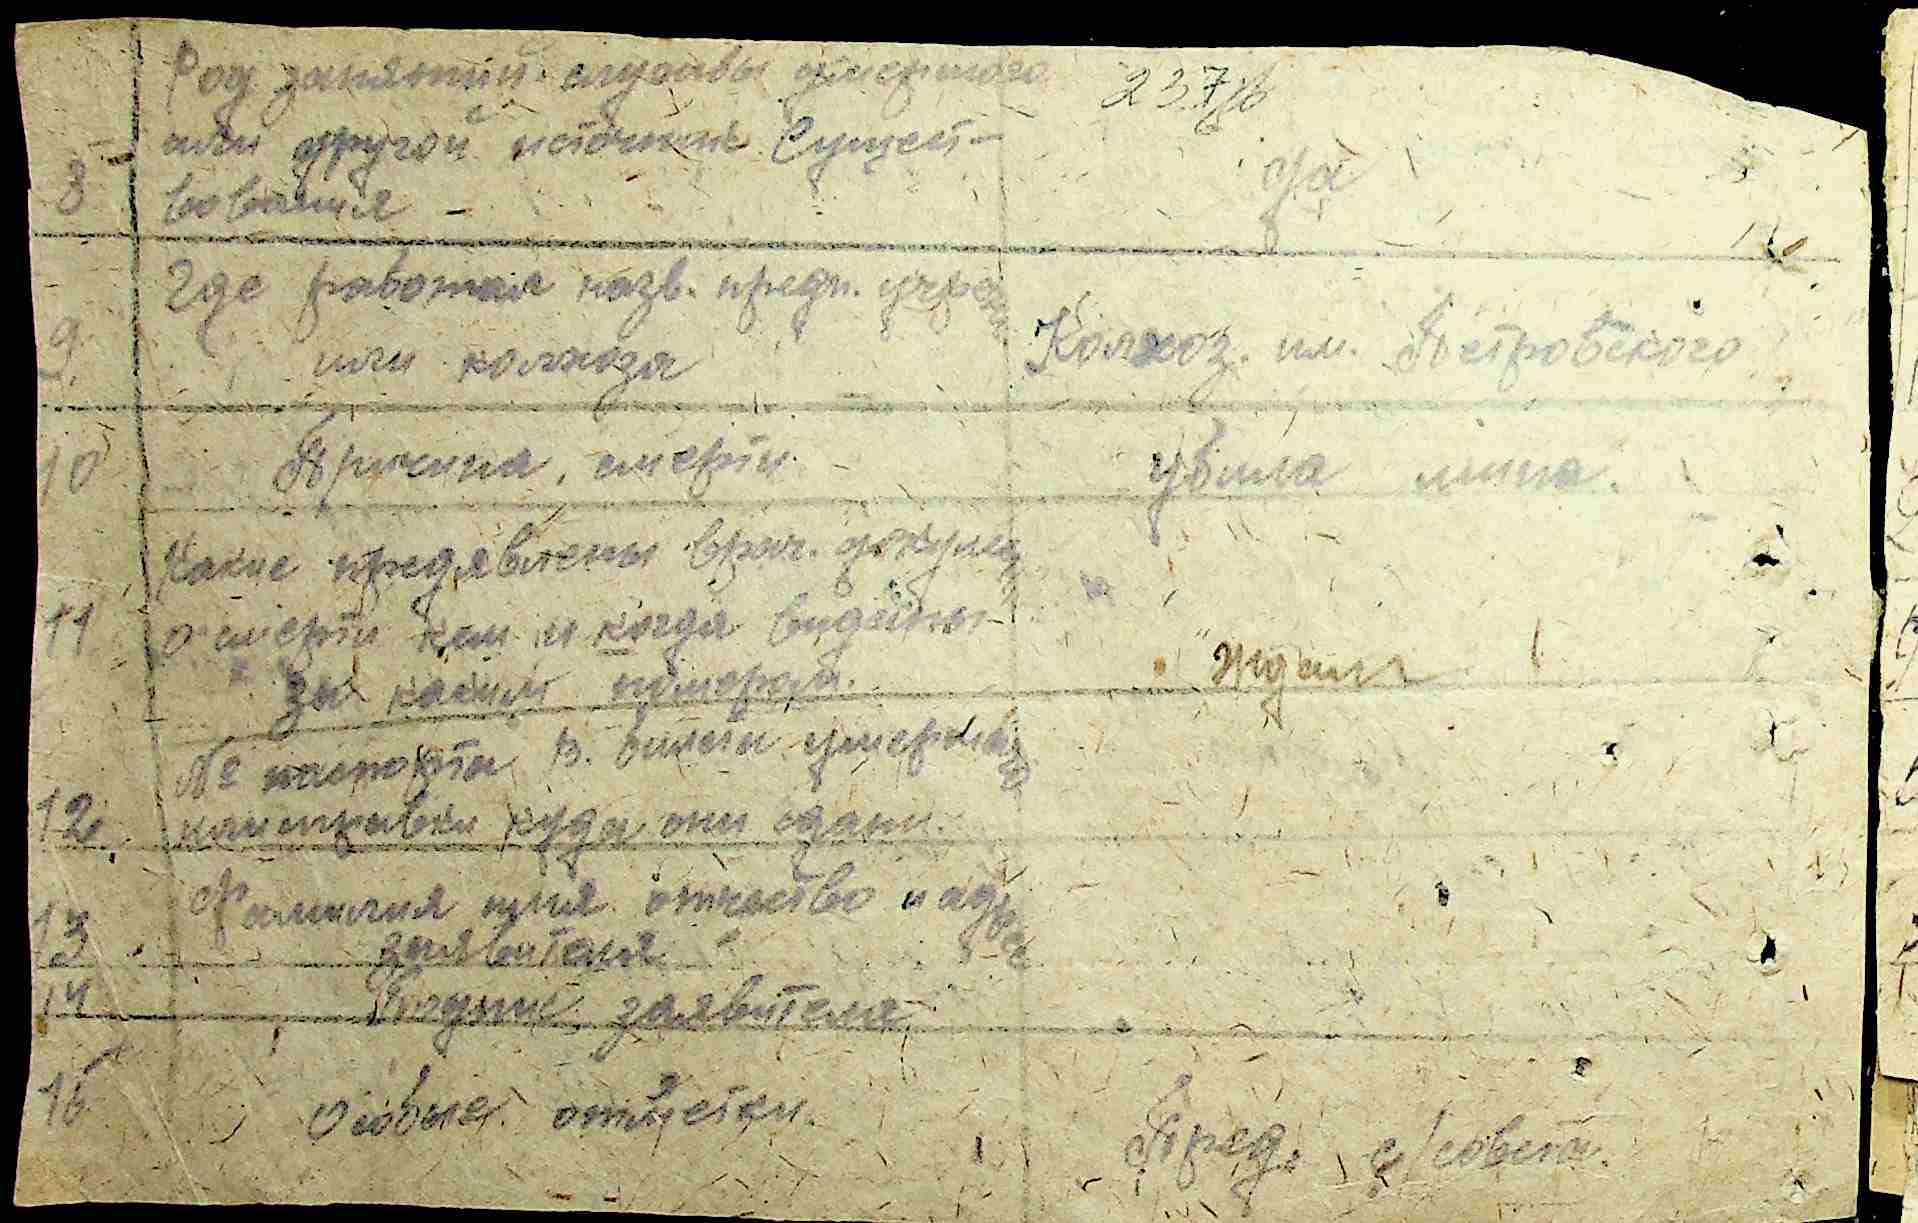 Род занятий службы умершего
или другой источник сущест-
8 вования - да
Где работал назв. предп. учреж
9 или колхоза Колхоз. им. Петровского
10 Причина смерти убила мина.
Какие предявлены врач. докумен
11 о смерти кем и когда видани
за каким номером.
№ паспорта в. билета умершего
12 куда они сдани.
Фамилия имя отчество и адрес
13 заявителя
14 Подпис заявителя
15 Особые отметки.
Пред. с/совета.